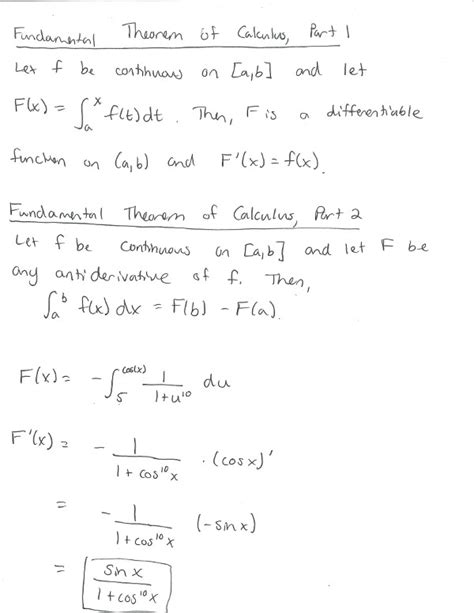 Fundamental Theorem of Calculus, Part 1
Let f be continuous on [a,b] and let
F(x) = ∫_a^x f(t)dt. Then, F is a differentiable
function on (a,b) and F'(x) = f(x).
Fundamental Theorem of Calculus, Part 2
Let f be continuous on [a,b] and let F be
any antiderivative of f. Then,
∫_a^b f(x) dx = F(b) - F(a).
F(x) = -∫_5^{cos(x)} 1/(1+u^10) du
F'(x) = - 1/(1 + cos^10 x) · (cos x)'
= - 1/(1 + cos^10 x) (-sin x)
= sin x/(1 + cos^10 x)